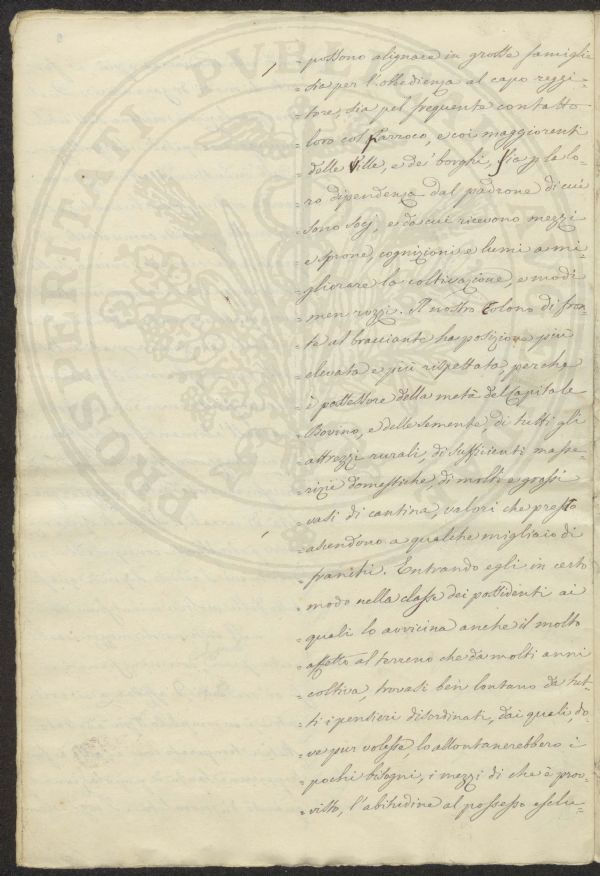 possono alignare in grosse famiglie
sia per l'obbedienza al capo reggi-
tore, sia pel frequente contatto
loro col Parroco, e coi maggiorenti
delle Ville, e de' borghi, sia p la lo-
ro dipendenza dal padrone di cui
sono socj, e da cui ricevono mezzi
e sprone, cognizioni e lumi a mi-
gliorare la coltivazione, e modi
men rozzi. Il nostro Colono di fron-
te al bracciante ha posizione più
elevata e più rispettata, perchè
è possessore della metà del Capitale
Bovino, e delle semente, di tutti gli
attrezzi rurali, di sufficienti masse-
rizie domestiche, di molti e grossi
vasi di cantina, valori che presto
ascendono a qualche migliaio di
franchi. Entrando egli in certo
modo nella classe dei possidenti ai
quali lo avvicina anche il molto
affetto al terreno che da molti anni
coltiva, trovasi ben lontano da tut-
ti i pensieri disordinati, dai quali, do-
ve pur volesse, lo allontanerebbero i
pochi bisogni, i mezzi di che è prov-
visto, l'abitudine al possesso esclu-
PROSPERITATI PVBL